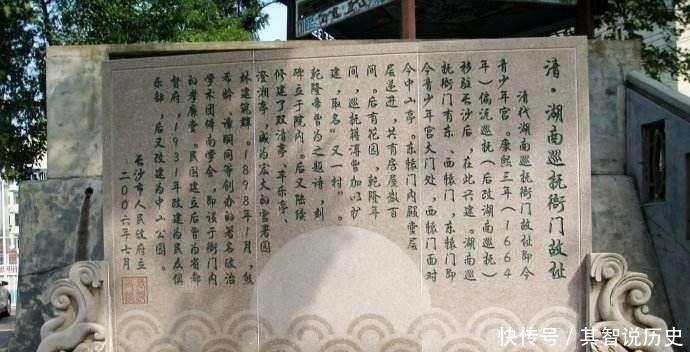 清·湖南巡抚衙门故址
清代湖南巡抚衙门故址即今
青少年宫。康熙三年(1664
年)偏沅巡抚(后改湖南巡抚)
移驻长沙后,在此兴建。湖南巡
抚衙门有东、西辕门,东辕门即
今青少年宫大门处,西辕门面对
今中山亭。东辕门内殿堂层
层递进,共有房屋数百
间。后有花园,乾隆年
间,巡抚
建,取名“又一村”。
乾隆帝曾为之题诗,刻
碑立于院内。后又陆续
修建了双清亭、丰乐亭、
澄湘亭,成为宏大的官署园
林建筑群。1898年1月,熊
希龄、谭嗣同等创办的著名政治
学术团体南学会,即设于衙门内
的孝廉堂。民国建立后曾为省都
督府,1931年改建为民众俱
乐部,后又改建为中山公园。
长沙市人民政府立
二00六年七月
快传号/其智说历史